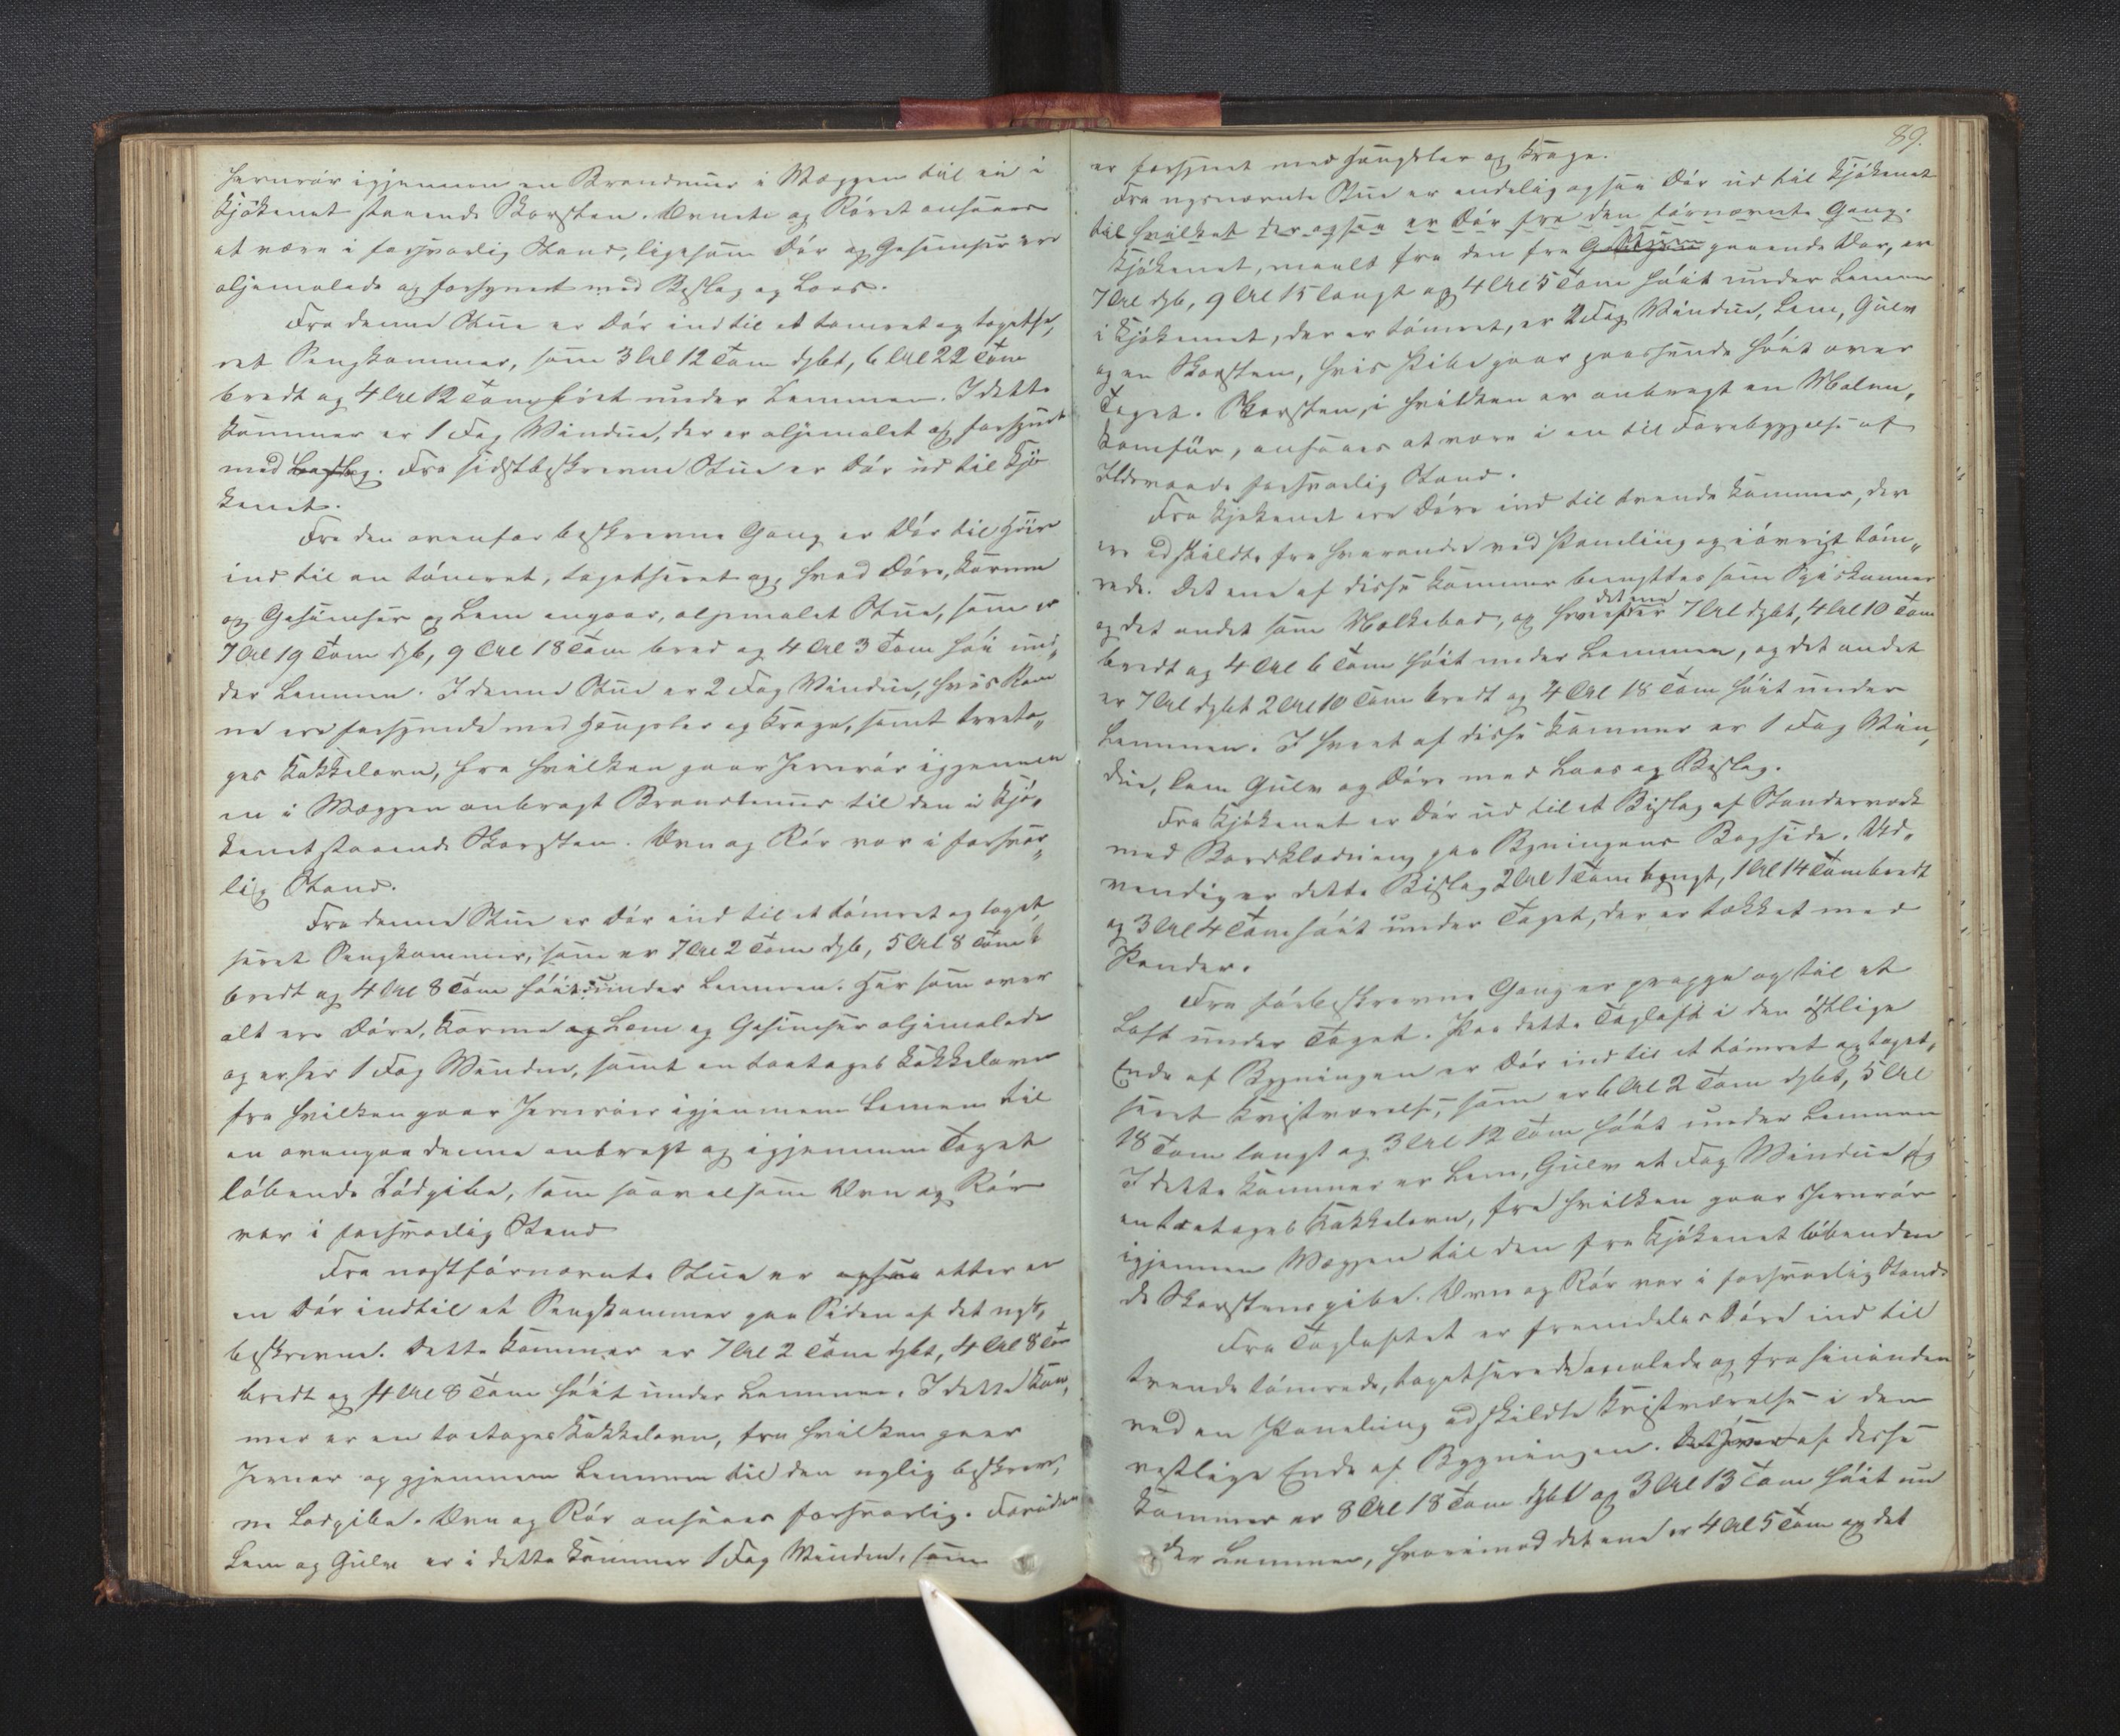 Jernrør igjennem en Brandmuur i Væggen til en i
Kjøkenet staaende Skorsten. Ovnene og Røret ansaaes
at være i forsvarlig Stand, ligesom Dør og Gesimser ere
oljemalede og forsynet med Beslag og Laas.
Fra denne Stue er Dør ind til et tømret og tapetse,
ret Sengkammer, som 3 Al 12 Tom dybt, 6 Al 22 Tom
bredt og 4 Al 12 Tom høit under Lemmen. I dette
Kammer er 1 Fag Vindue, der er oljemalet og forsynet
med Beslag. Fra sidstbeskrevne Stue er Dør ud til Kjø
kenet.
Fra den ovenfor beskrevne Gang er Dør til Høire
ind til en tømret, tapetseret og, hvad Døre, Karme
og Gesimser og Lem angaar, oljemalet Stue, som er
7 Al 19 Tom dyb, 9 Al 18 Tom bred og 4 Al 3 Tom høi un„
der Lemmen. I denne Stue er 2 Fag Vindue, hvis Ram
me ere forsynede med Hængsler og Kroge, samt treeta„
ges Kakkelovn, fra hvilken gaar Jernrør igjennem
en i Væggen anbragt Brandmuur til den i Kjø„
kenet staaende Skorsten. Ovn og Rør var i forsvar„
lig Stand.
Fra denne Stue er Dør ind til et tømret og tapet
seret Sengkammer, som er 7 Al 2 Tom dyb, 5 Al 8 Tom
bredt og 4 Al 8 Tom høit under Lemmen. Her som over
alt ere Døre, Karme og Lem og Gesimser oljemalede
og er her 1 Fag Vindue, samt en toetages Kakkelovn
fra hvilken gaar Jernrør igjennem Lemen til
en ovenpaa denne anbragt og igjennem Taget
løbende Lødpibe, som saavelsom Ovn og Rør
var i forsvarlig Stand
Fra næstførnævnte Stue er ogsaa atter er
en Dør indtil et Sengkammer paa Siden af det nys,
beskrevne. Dette Kammer er 7 Al 2 Tom dybt, 4 Al 8 Tom
bredt og 4 Al 8 Tom høit under Lemmen. I dette Kam,
mer er en toetages Kakkelovn, fra hvilken gaar
Jernrør og gjennem Lemmen til den nylig beskrev,
ne Lødpibe. Ovn og Rør ansaaes forsvarlig. Foruden
Lem og Gulv er i dette Kammer 1 Fag Vindue, som
89.
er forsynet med Hængsler og Kroge.
Fra nysnævnte Stue er endelig ogsaa Dør ud til Kjøkenet
til hvilket der ogsaa er Dør fra den førnævnte Gang.
Kjøkenet, maalt fra den fra gaaende Dør, er
7 Al dyb, 9 Al 15 langt og 4 Al 5 Tom høit under Lemmen
i Kjøkenet, der er tømret, er 2 Fag Vindue, Lem, Gulv
og en Skorsten, hvis Pibe gaar passende høit over
Taget. Skorsten, i hvilken er anbragt en
Komfur, ansaaes at være i en til Forebyggelse af
Ildsvaade forsvarlig Stand.
Fra Kjøkenet ere Døre ind til tvende Kammer, der
ere adskildte fra hverandre ved Paneling og iøvrigt tøm„
rede. Det ene af disse Kammer benyttes som Spiskammer
og det andet som Melkebod, og det ene er 7 Al dybt, 4 Al 10 Tom
bredt og 4 Al 6 Tom høit under Lemmen, og det andet
er 7 Al dybt 2 Al 10 Tom bredt og 4 Al 18 Tom høit under
Lemmen. I hvert af disse Kammer er 1 Fag Vin,
due, Lem Gulv og Døre med Laas og Beslag.
Fra Kjøkenet er Dør ud til et Bislag af Standerværk
med Bordklædning paa Bygningens Bagside. Ud„
vendig er dette Bislag 2 Al 1 Tom langt, 1 Al 14 Tom bredt
og 3 Al 4 Tom høit under Taget, der er tækket med
Pander.
Fra førbeskrevne Gang er Trappe op til et
Loft under Taget. Paa dette Tagloft i den østlige
Ende af Bygningen er Dør ind til et tømret og tapet,
seret Kvistværelse, som er 6 Al 2 Tom dybt, 5 Al
18 Tom langt og 3 Al 12 Tom høit under Lemmen
I dette Kammer er Lem, Gulv et Fag Vindue og
en toetages Kakkelovn, fra hvilken gaar Jernrør
igjennem Væggen til den fra Kjøkenet løbenden
de Skorstenspibe. Ovn og Rør var i forsvarlig Stand
Fra Tagloftet er fremdeles Døre ind til
tvende tømrede, tapetserede malede og fra hinanden
ved en Paneling adskildte Kvistværelse i den
vestlige Ende af Bygningen. af disse
Kammer er 8 Al 18 Tom dybt og 3 Al 13 Tom høit un
der Lemmen, hvorimod det ene er 4 Al 5 Tom og det